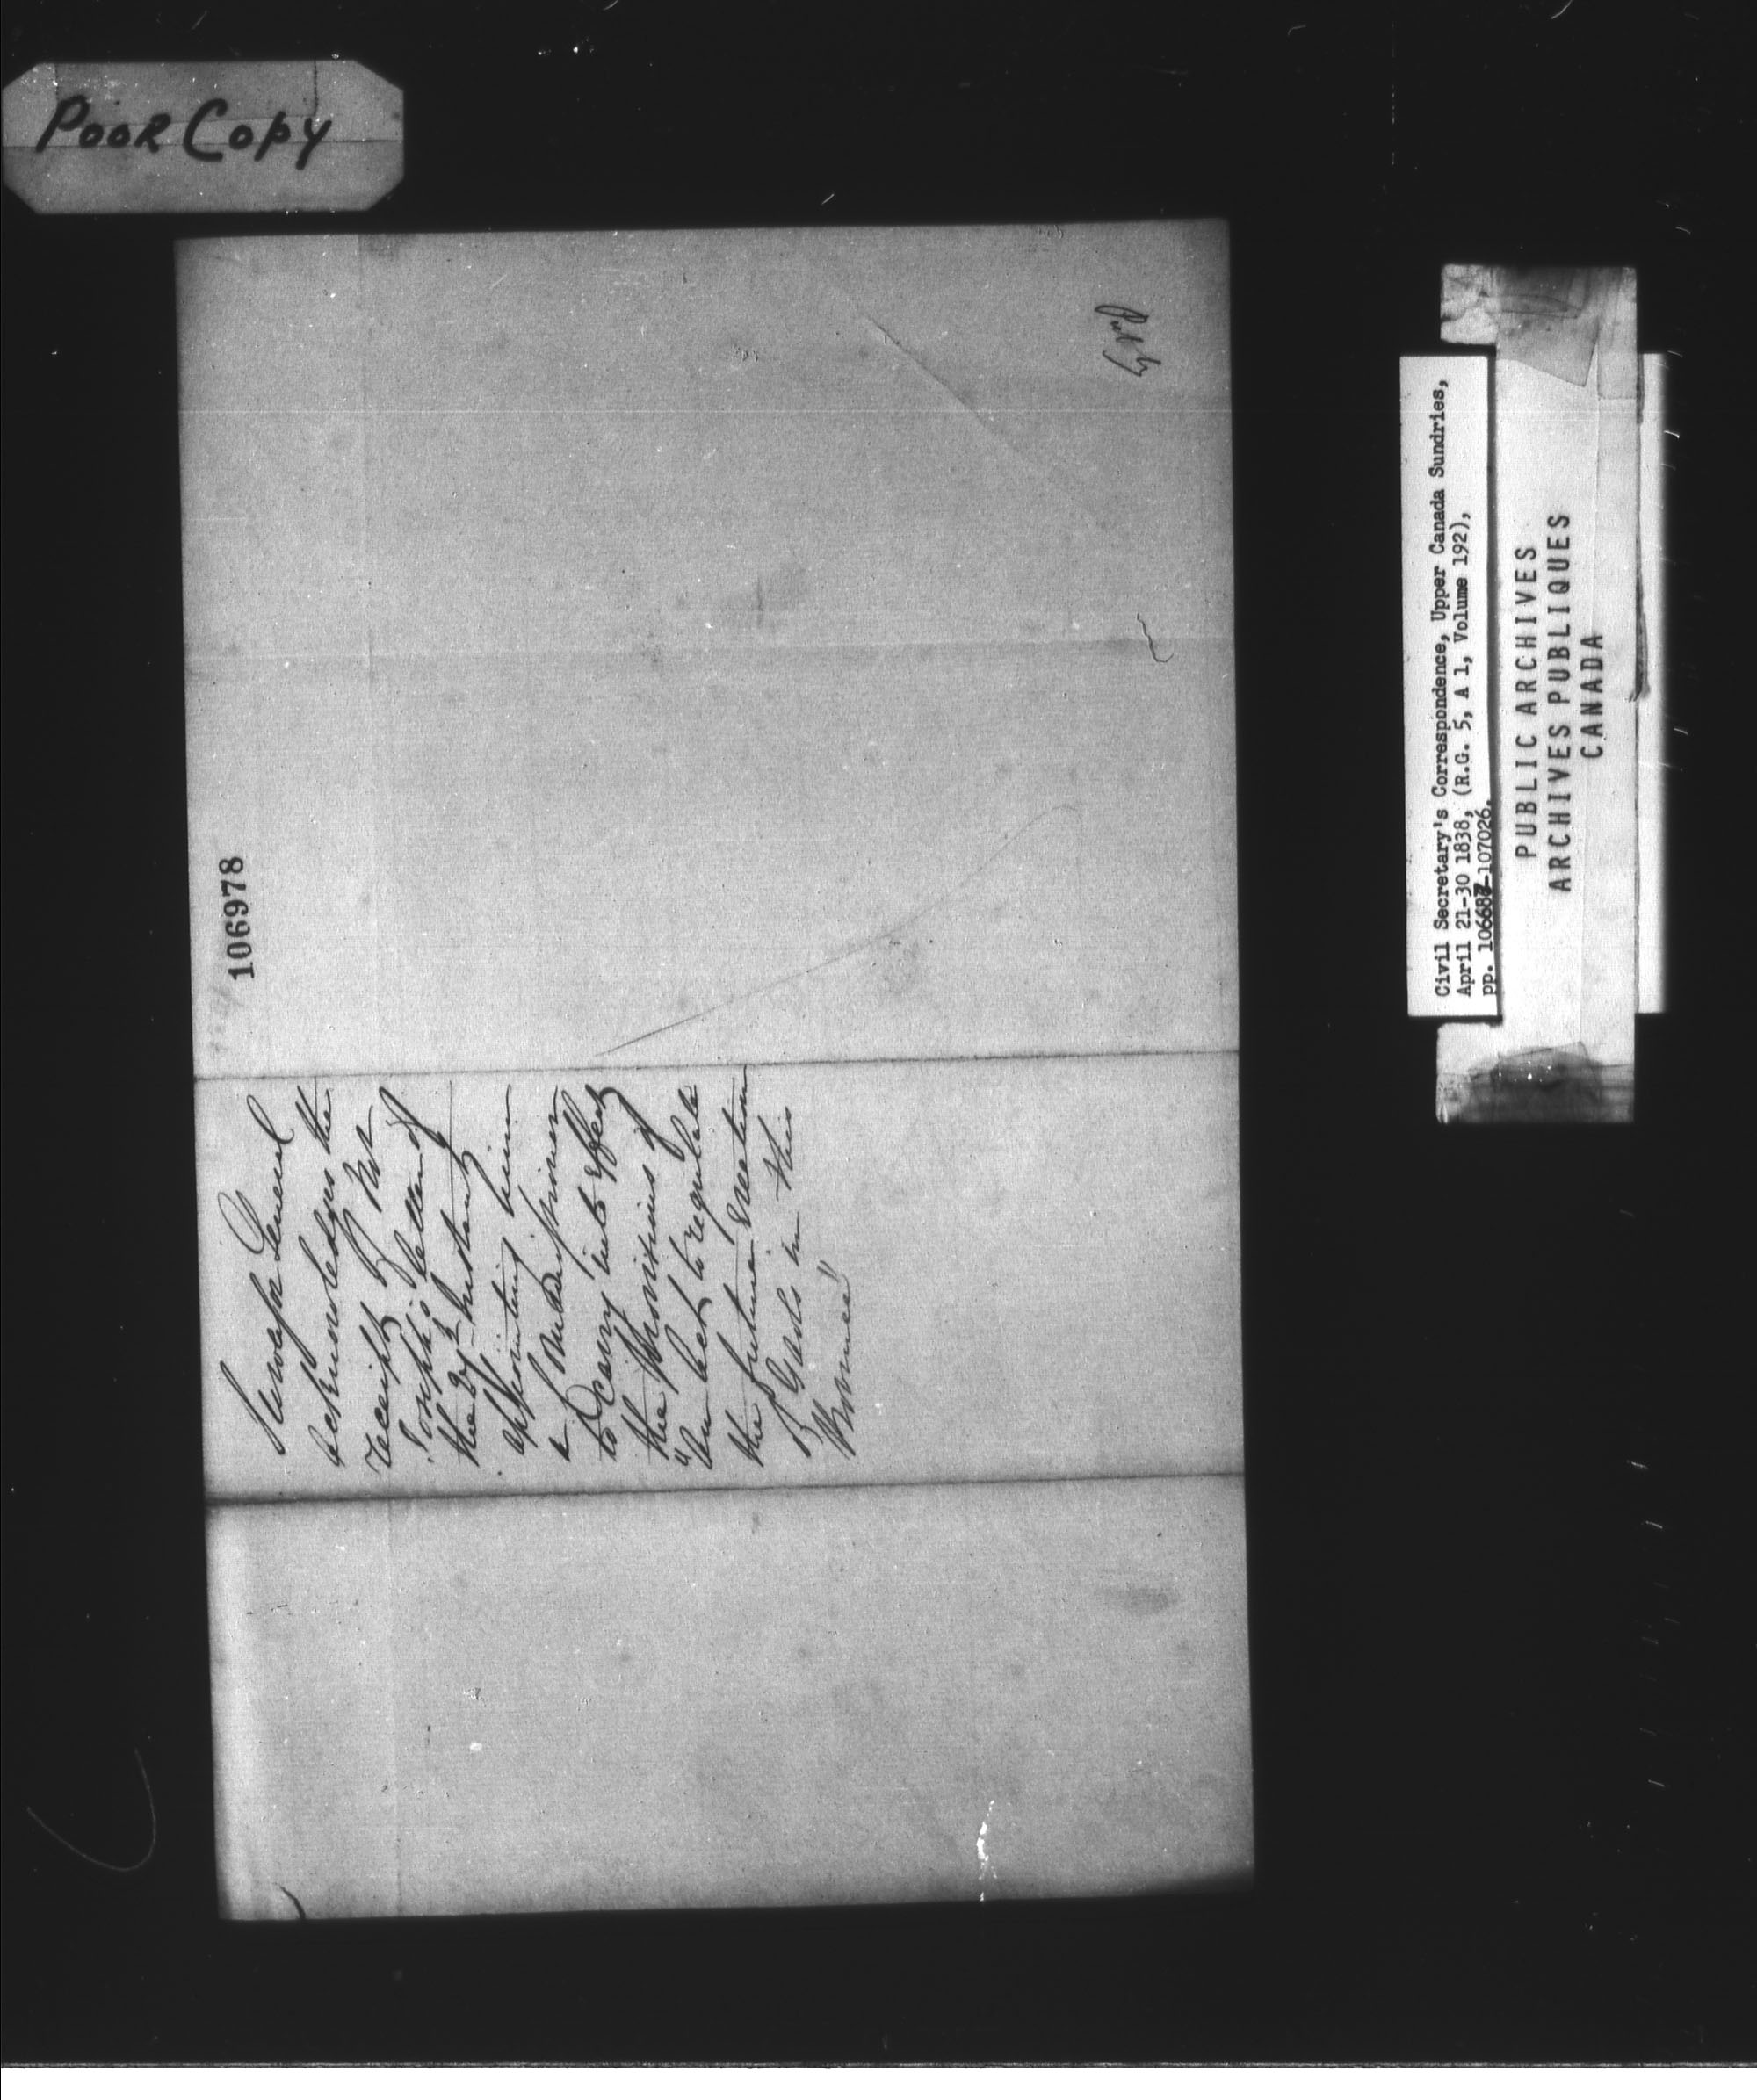 POOR COPY
106978
Surveyor General
acknowledges the
receipt of Mr
Joseph's letter of
the 27th instant
appointing him
a Commissioner
to carry into effect
the provisions of
"An Act to regulate
the future erection
of Gaols in this
Province"
Civil Secretary's Correspondence, Upper Canada Sundries,
April 21-30 1838, (R.G. 5, A 1, Volume 192),
pp. 106687-107026.
PUBLIC ARCHIVES
ARCHIVES PUBLIQUES
CANADA